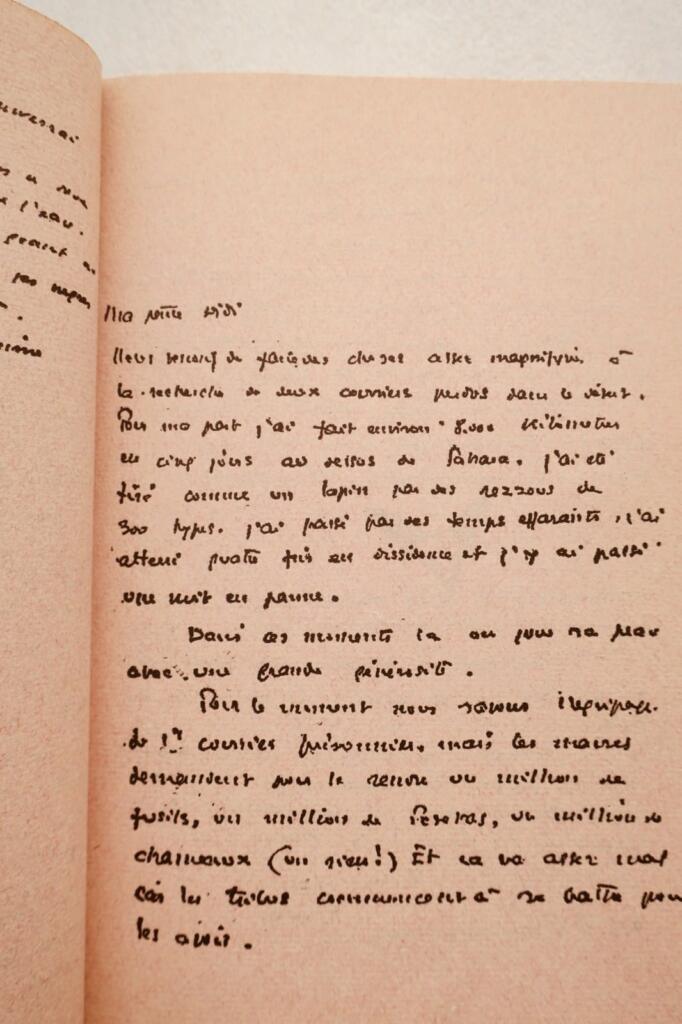 l'eau.
Ma petite Didi
de quelques choses assez magnifiques à
la recherche de deux courriers perdus dans le désert.
Pour ma part j'ai fait environ 8.000 kilomètres
en cinq jours au dessus du Sahara. j'ai été
tiré comme un lapin par des rezzous de
300 types. j'ai passé par des temps effarants, j'ai
atterri quatre fois en dissidence et j'y ai passé
une nuit en panne.
Dans ces moments là on joue sa peau
avec une grande générosité.
Pour le moment nous savons l'équipage
du 1er courrier prisonnier. mais les maures
demandent pour le rendre un million de
fusils, un million de Pesetas, un million de
chameaux (un rien!) Et ça va assez mal
car les tribus commencent à se battre pour
les avoir.